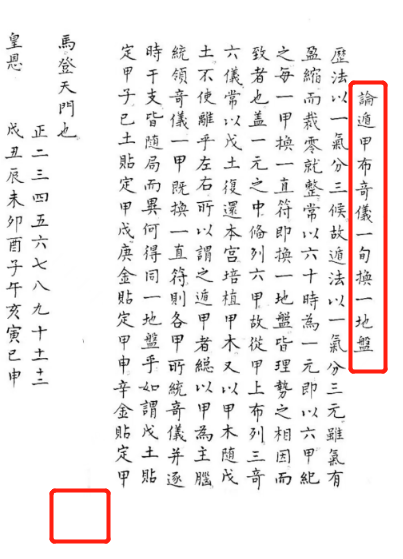 論遁甲布奇儀一旬換一地盤
歷法以一氣分三候故遁法以一氣分三元雖氣有
盈縮而裁零就整常以六十時為一元即以六甲紀
之每一甲換一直符即換一地盤皆理勢之相因而
致者也盖一元之中脩列六甲故從甲上布列三奇
六儀常以戊土復還本宮培植甲木又以甲木隨戊
土不使離乎左右所以謂之遁甲者緫以甲為主腦
統領奇儀一甲既換一直符則各甲所統奇儀并逐
時干支皆隨局而異何得同一地盤乎如謂戊土貼
定甲子己土貼定甲戌庚金貼定甲申辛金貼定甲
馬登天門也
正二三四五六七八九十十一十二
皇恩 戌丑辰未卯酉子午亥寅巳申